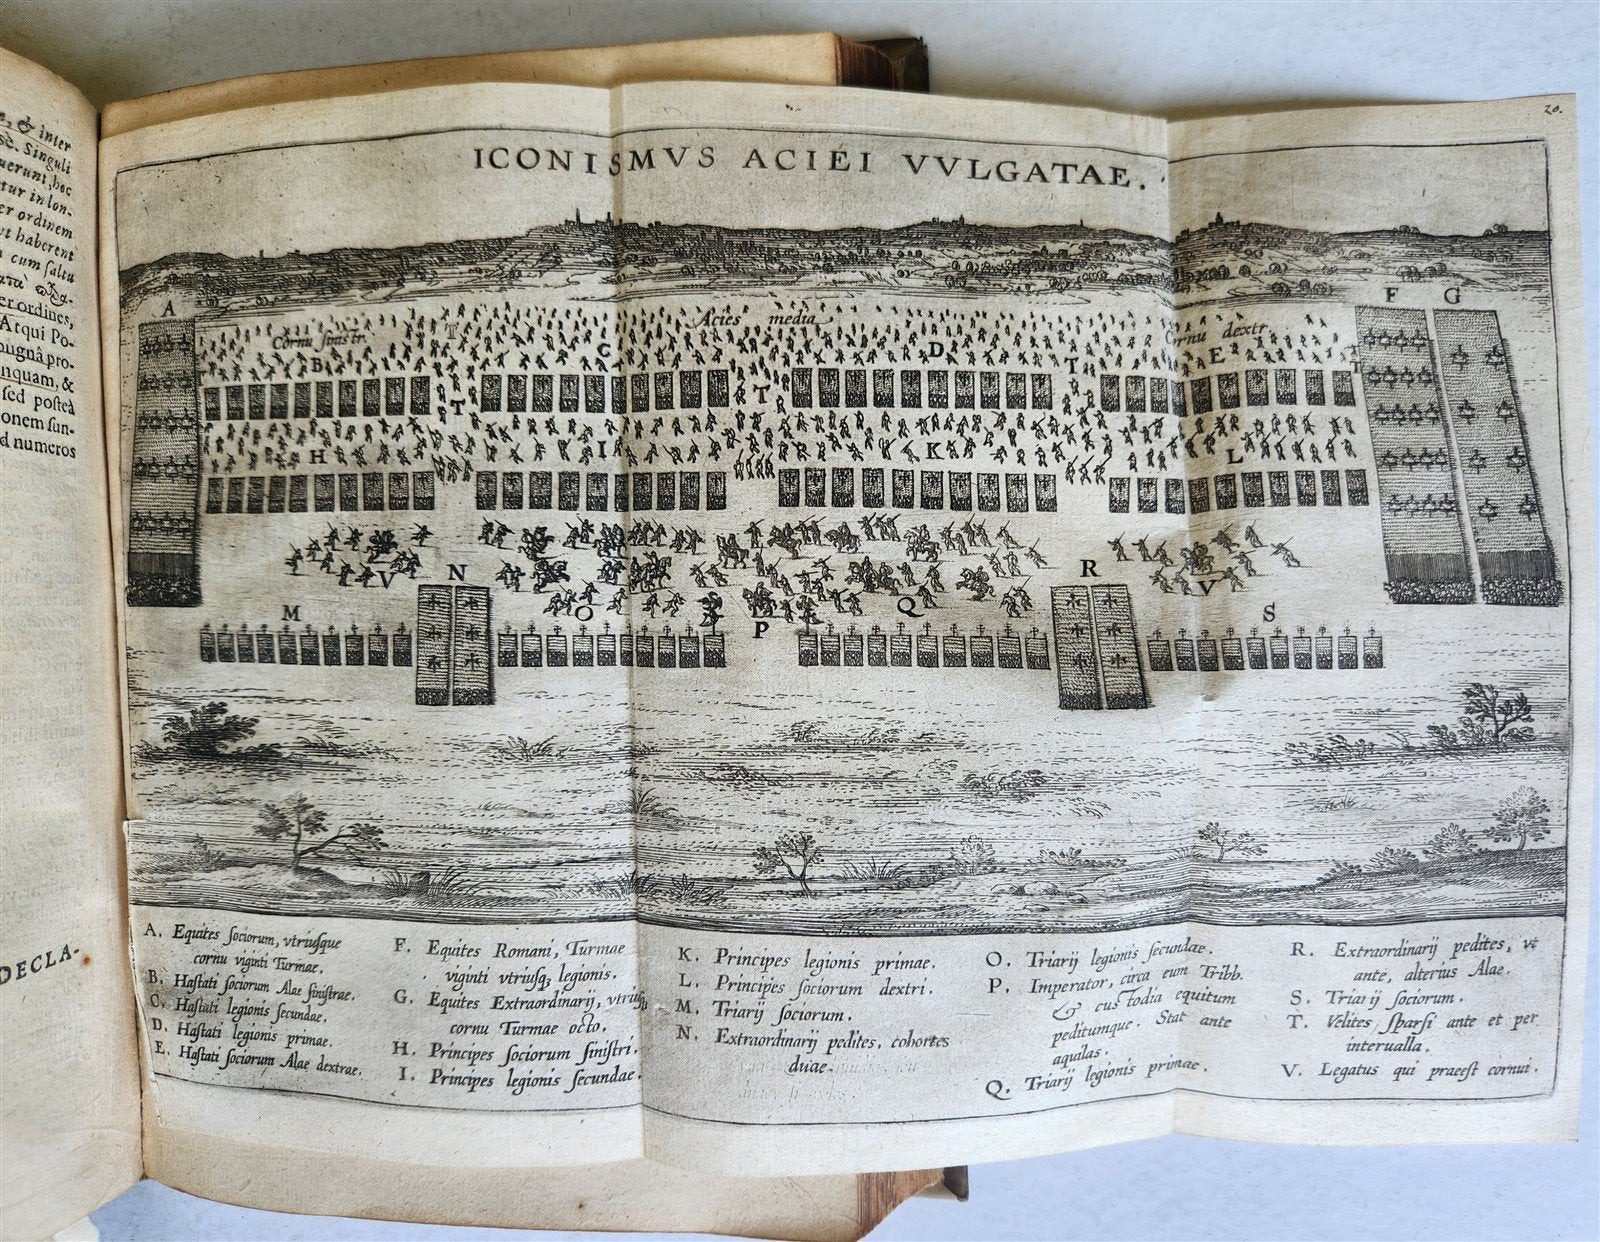 & inter
sè. Singuli
uerunt, hoc
tur in lon-
er ordinem
vt haberent
cum ſaltu
er ordines,
Arqui Po-
pugnâ pro-
nquam, &
ſed poſteà
onem ſun-
d numeros
DECLA-
20.
ICONISMVS ACIEI VVLGATAE.
A
F G
Cornu ſiniſtr.
T
Acies media
Cornu dextr
B C D T E T
T T
H I K L
V N R V
M O P Q S
A. Equites ſociorum, vtriuſque
cornu viginti Turmae.
B. Haſtati ſociorum Alae ſiniſtrae.
C. Haſtati legionis ſecundae.
D. Haſtati legionis primae.
E. Haſtati ſociorum Alae dextrae.
F. Equites Romani, Turmae
viginti vtriuſq; legionis.
G. Equites Extraordinarij, vtriuſq;
cornu Turmae octo.
H. Principes ſociorum ſiniſtri.
I. Principes legionis ſecundae.
K. Principes legionis primae.
L. Principes ſociorum dextri.
M. Triarij ſociorum.
N. Extraordinarij pedites, cohortes
duae.
O. Triarij legionis ſecundae.
P. Imperator, circa eum Tribb.
& cuſtodia equitum
peditumque. Stat ante
aquilas.
Q. Triarij legionis primae.
R. Extraordinarij pedites, vt
ante, alterius Alae.
S. Triarij ſociorum.
T. Velites ſparſi ante et per
interualla.
V. Legatus qui praeeſt cornui.